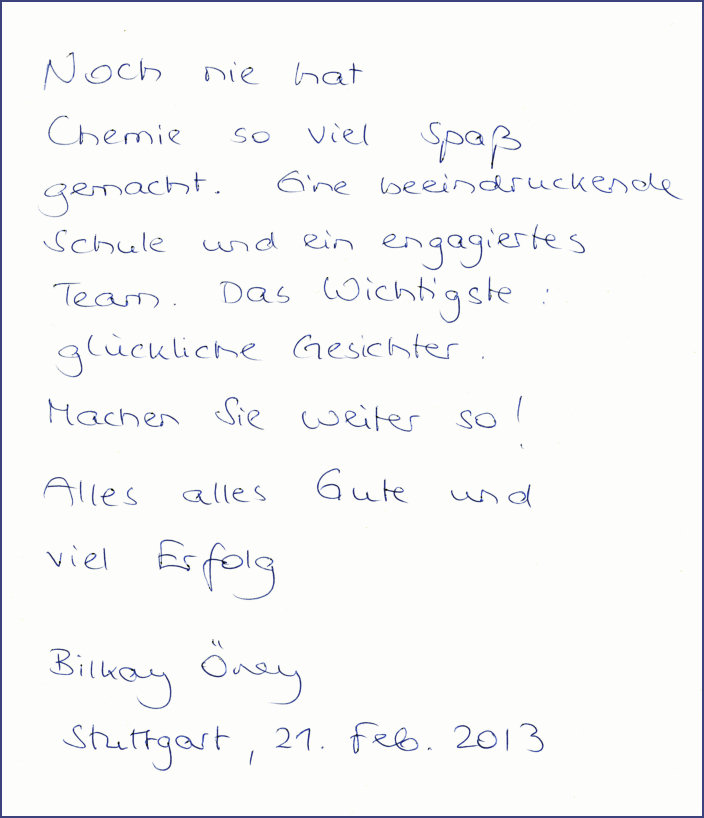 Noch nie hat
Chemie so viel Spaß
gemacht. Eine beeindruckende
Schule und ein engagiertes
Team. Das Wichtigste:
glückliche Gesichter.
Machen Sie weiter so!
Alles alles Gute und
viel Erfolg
Bilkay Öney
Stuttgart, 21. Feb. 2013